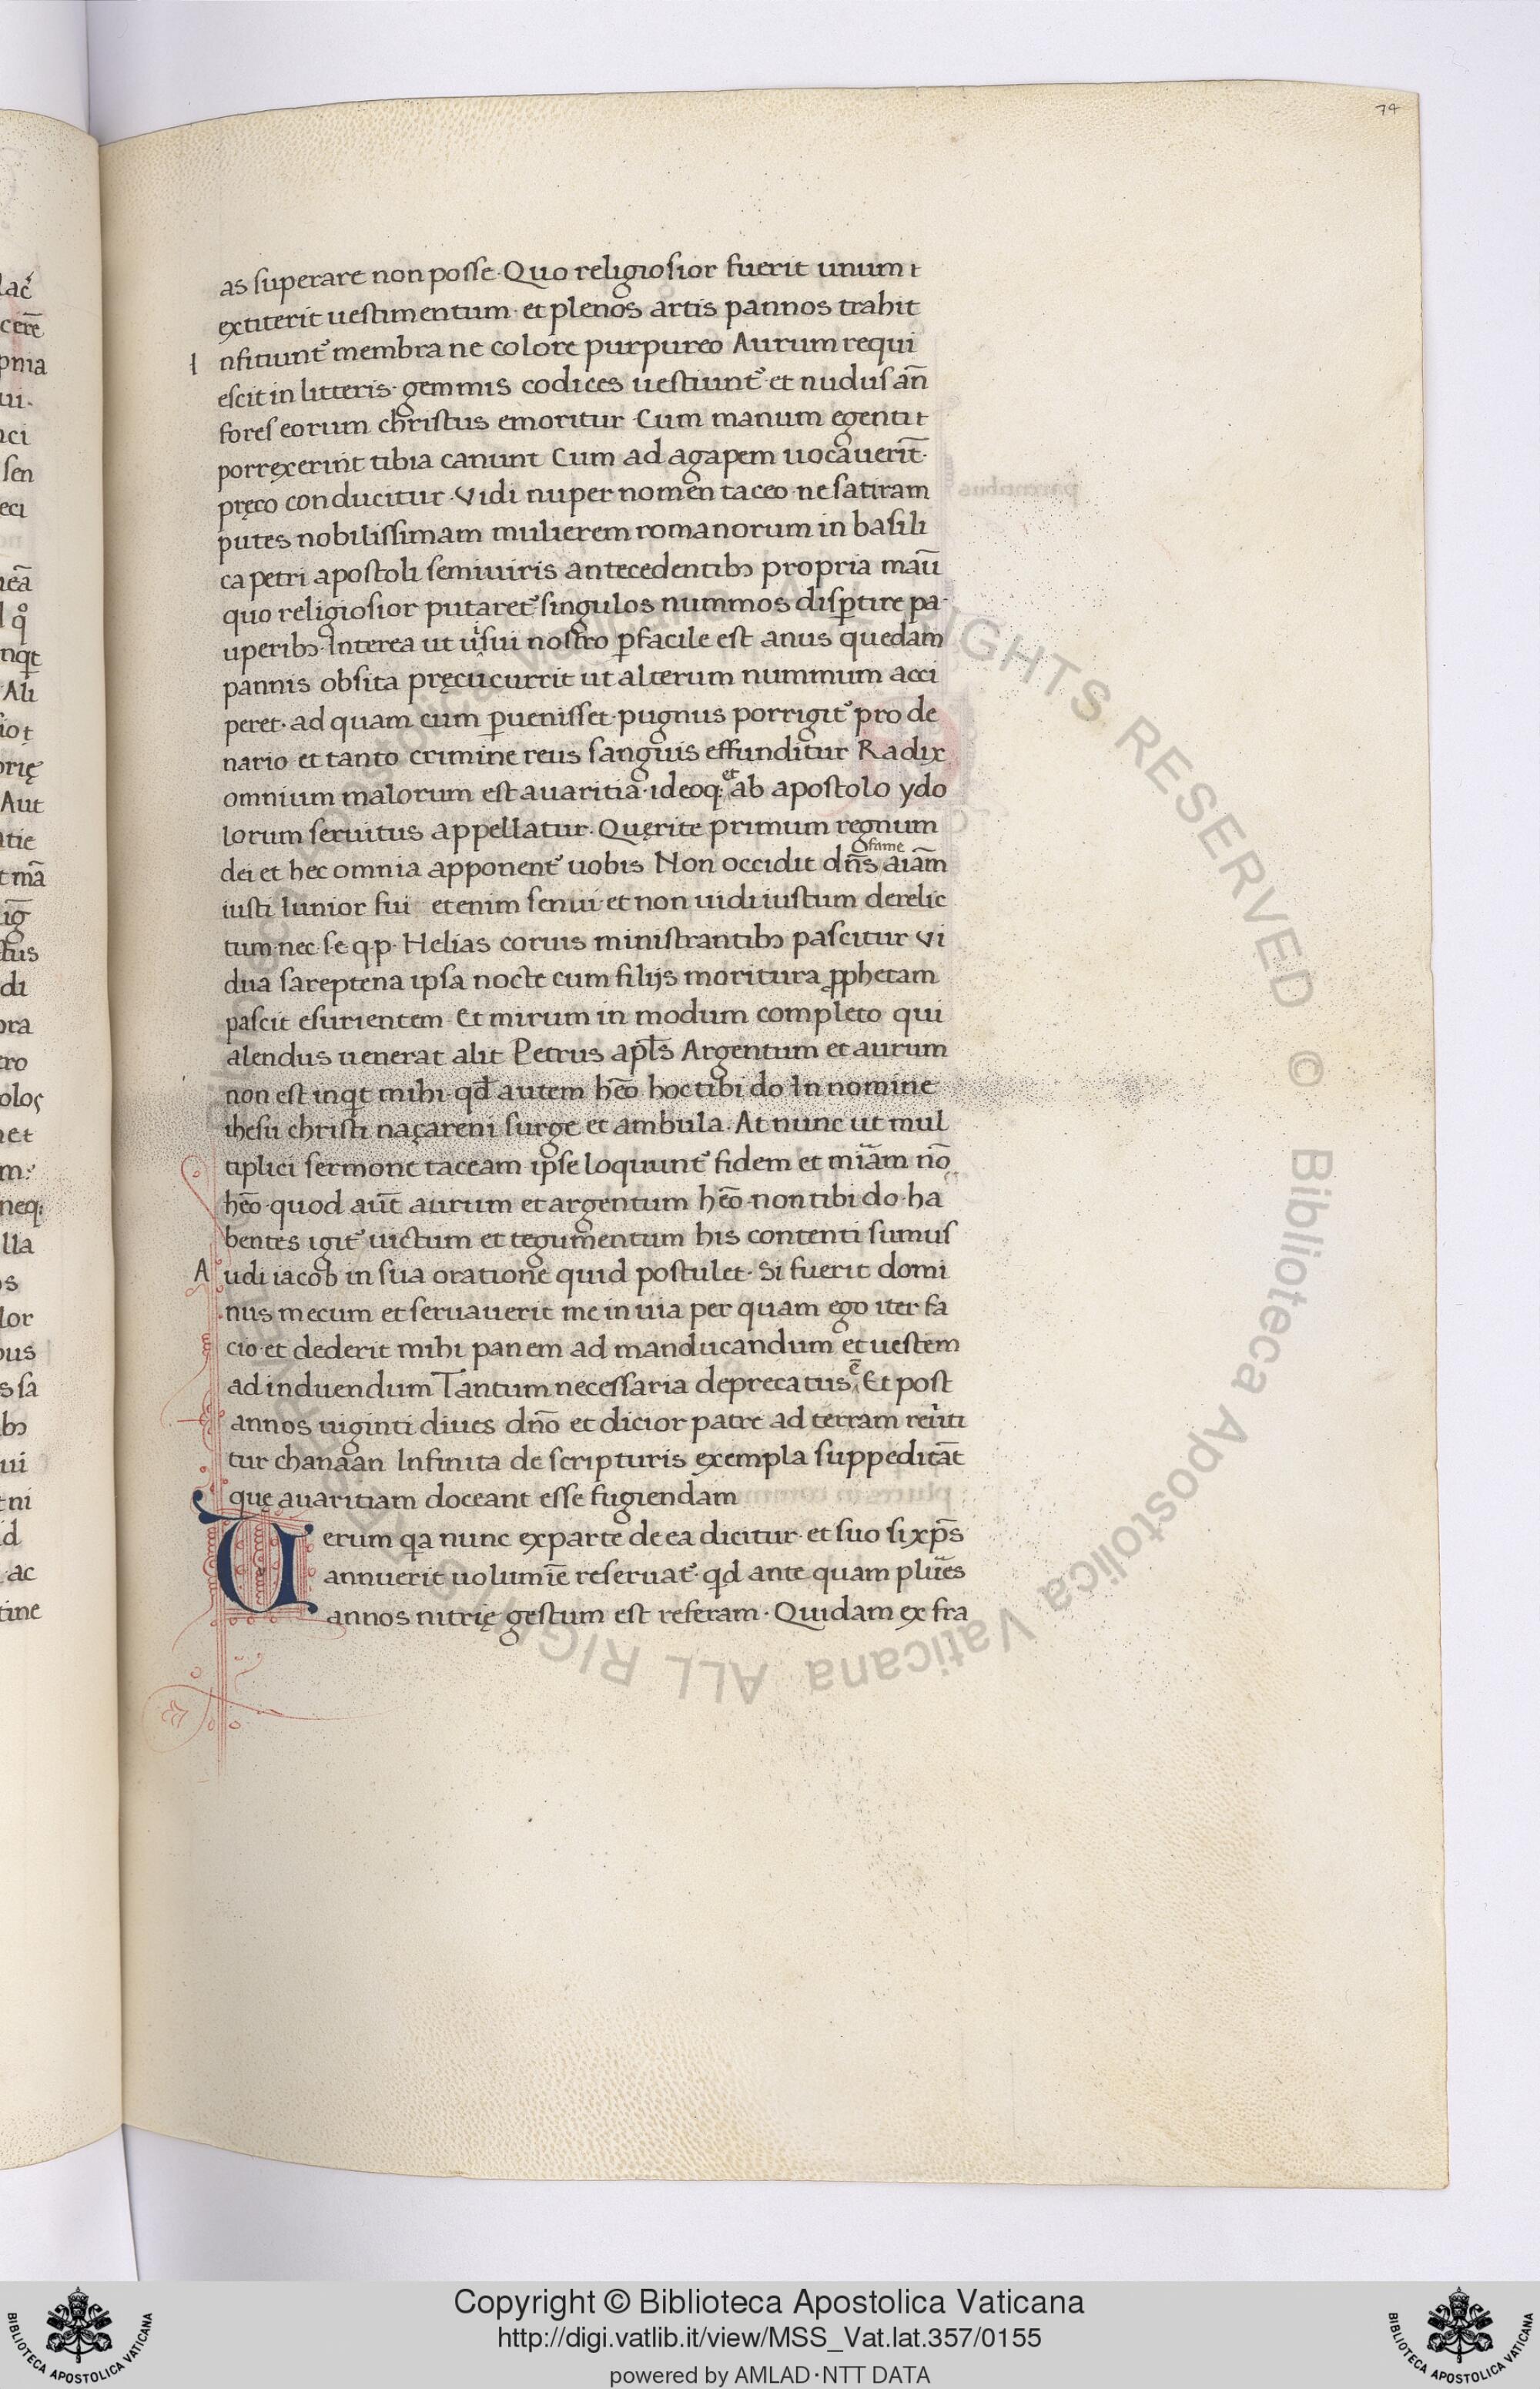 74
as superare non posse· Quo religiosior fuerit unum t
extiterit uestimentum· et plenos artis pannos trahit
I nfitiunt᷑ membrane colore purpureo Aurum requi
escit in litteris· gemmis codices uestiunt᷑· et nudus an̄
fores eorum christus emoritur· Cum manum egenti t
porręxerint tibia canunt Cum ad agapem uocauerit̄·
pręco conducitur· Vidi nuper nomen taceo ne satiram
putes nobilissimam mulierem romanorum in basili
ca petri apostoli semiuiris antecedentibꝫ propria maū
quo religiosior putaret᷑ singulos nummos disꝑtire pa-
uperibꝫ· Interea ut usui nostro ꝑfacile est anus quedam
pannis obsita pręcucurrit ut alterum nummum acci
peret· ad quam cum ꝑuenisset· pugnus porrigit᷑ pro de
nario et tanto crimine reus sanguis effunditur Radix
omnium malorum est auaritia· ideoq: et ab apostolo ydo
lorum seruitus appellatur· Quęrite primum regnum
dei et hec omnia apponent᷑ uobis Non occidit dn̄s fame aiam̄
iusti Iunior fui etenim senui· et non uidi iustum derelic
tum· nec· se· q· p· Helias coruis ministrantibꝫ pascitur Vi
dua sareptena ipsa nocte cum filijs moritura ꝓphetam
pascit esurientem· Et mirum in modum completo qui
alendus uenerat alit Petrus apl̄s Argentum et aurum
non est inqt mihi· qd̄ autem hēo hoc tibi do In nomine
ihesu christi naçareni surge et ambula· At nunc ut mul
tiplici sermone taceam ip̄se loquunt᷑ fidem et miam̄ nō
hēo· quod aūt aurum et argentum hēo· non tibi do· ha
bentes igit᷑ uictum et tegumentum his contenti sumus
A udi iacob in sua oratione quid postulet· Si fuerit domi
nus mecum et seruauerit me in uia per quam ego iter fa
cio· et dederit mihi panem ad manducandum et uestem
ad induendum Tantum necessaria deprecatus ē Et post
annos uiginti diues dn̄o et dicior patre ad terram reuti
tur chanaan Infinita de scripturis exempla suppeditāt
quę auaritiam doceant esse fugiendam
Uerum qa nunc ex parte de ea dicitur· et suo si xp̄s
annuerit uolumiē reseruat᷑· qd ante quam plūes
annos nitrię gestum est referam· Quidam ex fra
Copyright © Biblioteca Apostolica Vaticana
http://digi.vatlib.it/view/MSS_Vat.lat.357/0155
powered by AMLAD·NTT DATA
BIBLIOTECA APOSTOLICA VATICANA
BIBLIOTECA APOSTOLICA VATICANA